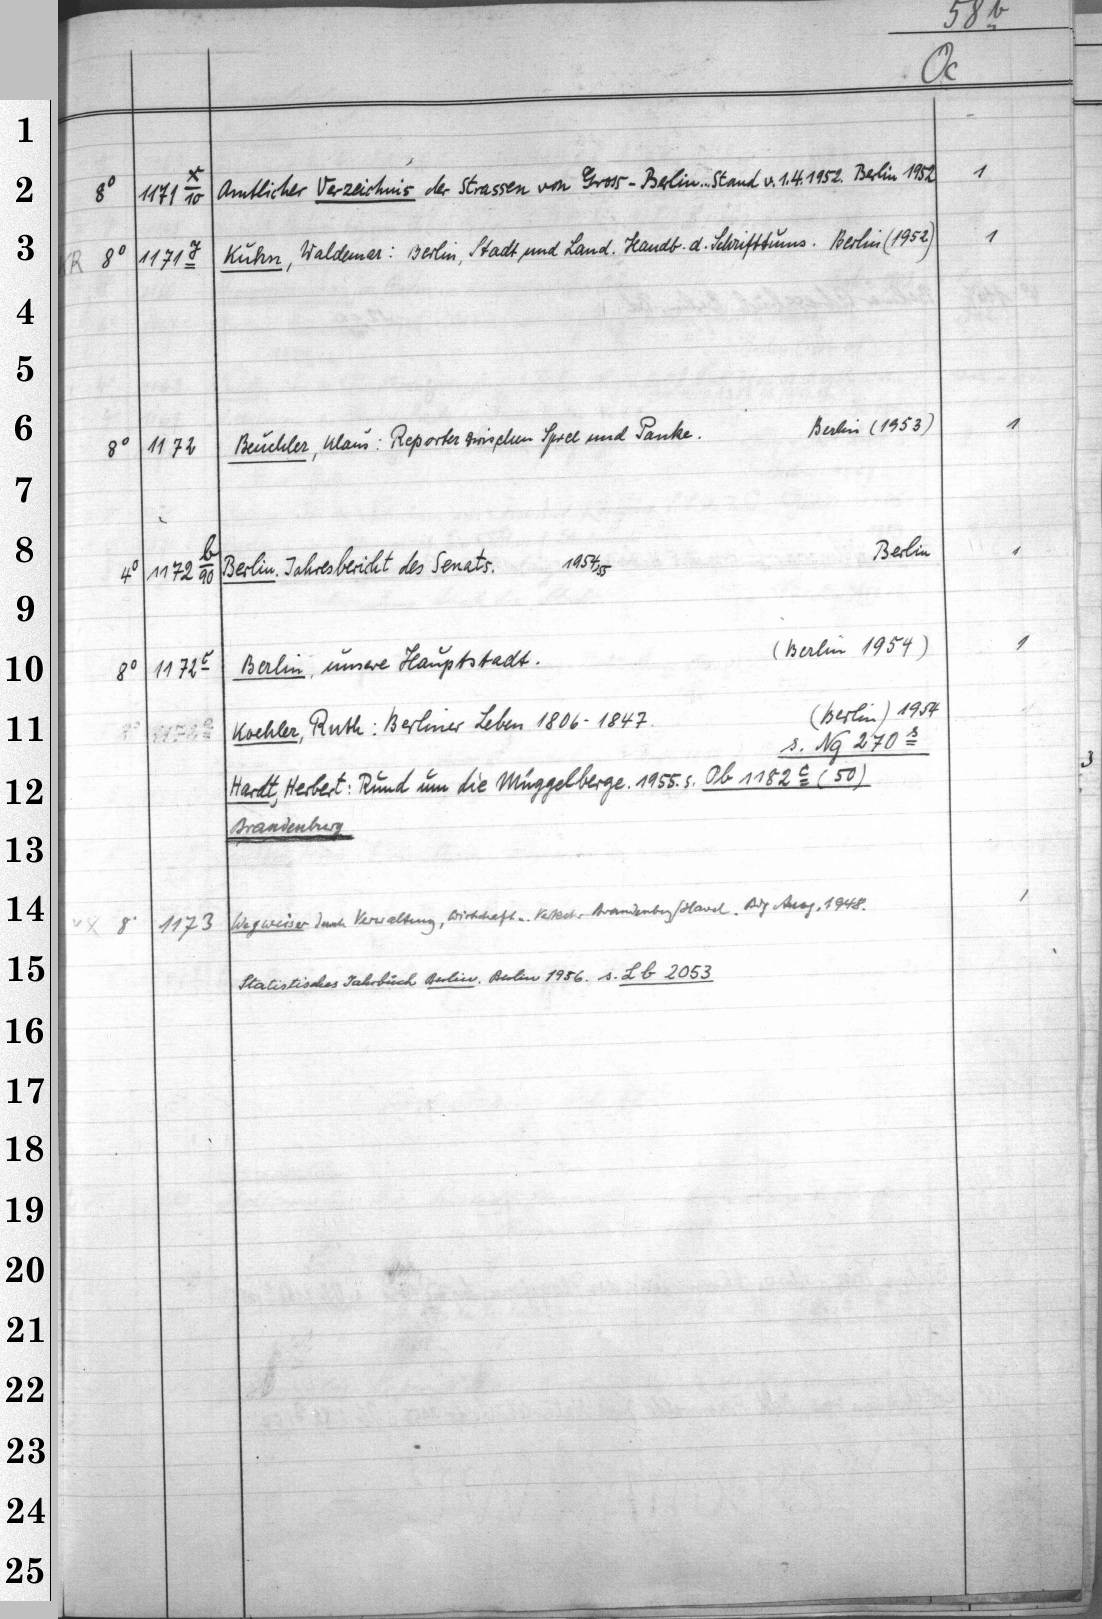 58b
Oc
1
2 8° 1171 x/10 Amtlicher Verzeichnis der Strassen von Gross-Berlin.. Stand v. 1.4.1952. Berlin 1952 1
3 8° 1171 y Kühn, Waldemar: Berlin, Stadt und Land. Handb. d. Schrifttums. Berlin (1952) 1
4
5
6 8° 1172 Beuchler, Klaus: Reporter zwischen Spree und Panke. Berlin (1953) 1
7
8 4° 1172 b/90 Berlin. Jahresbericht des Senats. 1954/55 Berlin 1
9
10 8° 1172 c Berlin, unsere Hauptstadt. (Berlin 1954) 1
11 Koehler, Ruth: Berliner Leben 1806-1847 (Berlin) 1954
s. Ng 270 s
12 Hardt, Herbert: Rund um die Müggelberge. 1955. s. Ob 1182 c (50)
Brandenburg
13
14 8° 1173 Wegweiser durch Verwaltung, Wirtschaft u. Verkehr Brandenburg/Havel. Ausg. 1948. 1
15 Statistisches Jahrbuch Berlin. Berlin 1956. s. Lb 2053
16
17
18
19
20
21
22
23
24
25
3